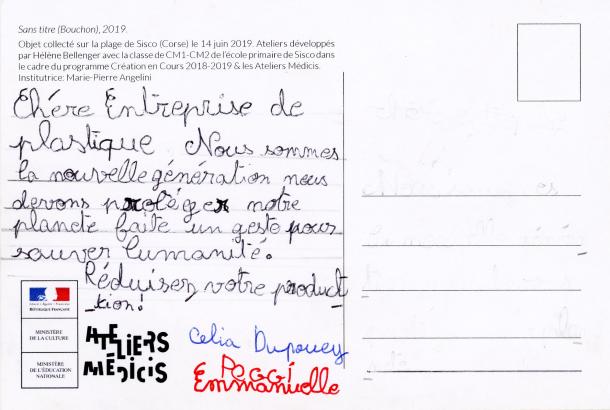 Sans titre (Bouchon), 2019.
Objet collecté sur la plage de Sisco (Corse) le 14 juin 2019. Ateliers développés
par Hélène Bellenger avec la classe de CM1-CM2 de l'école primaire de Sisco dans
le cadre du programme Création en Cours 2018-2019 & les Ateliers Médicis.
Institutrice: Marie-Pierre Angelini
Chère Entreprise de
plastique. Nous sommes
la nouvelle génération nous
devons protéger notre
planete faite un geste pour
sauver lumanité.
Réduisez votre product
-tion!
RÉPUBLIQUE FRANÇAISE
MINISTÈRE
DE LA CULTURE
MINISTÈRE
DE L'ÉDUCATION
NATIONALE
ATELIERS
MÉDICIS
Celia Dupouey
Poggi
Emmanuelle